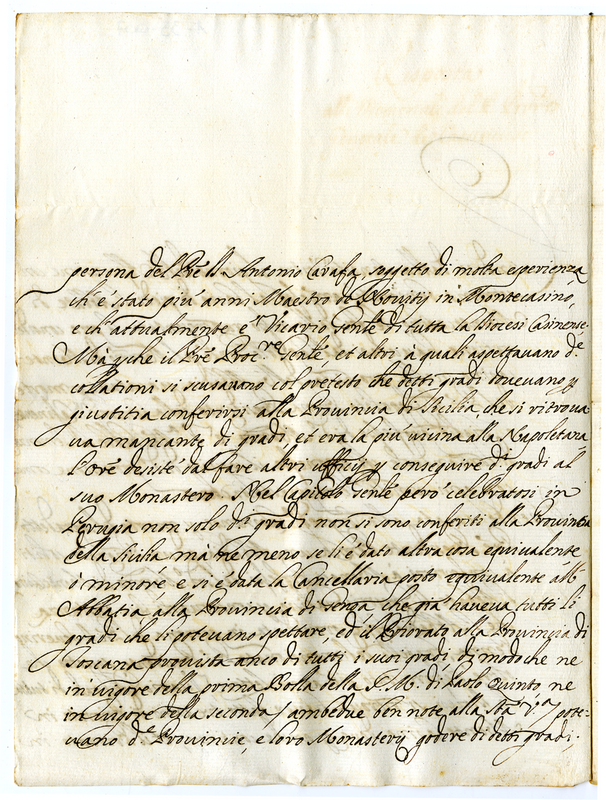 persona del Pre̅ D. Antonio Carafa, soggetto di molta esperienza
ch'è stato più anni Maestro de Novitij in Montecasino,
e ch'attualmente è Vicario Gen̅le di tutta la Diocesi Casinense.
Mà perche il Pre̅ Proc.re Gen̅le, et altri à quali aspettavano d.e
collationi si scusavano col pretesto che detti gradi dovevano p
giustitia conferirsi alla Provincia di Sicilia, che si ritrova
va mancante di gradi, et era la più vicina alla Napoletana
l'Ore̅ desisté dal fare altri ufficij p conseguire d.i gradi al
suo Monastero. Nel Capitolo Gen̅le però celebratosi in
Perugia non solo d.i gradi non si sono conferiti alla Provincia
della Sicilia mà ne meno se li è dato altra cosa equivalente
ò minore, e si è data la Cancellaria posto equivalente all'
Abbatia, alla Provincia di Genoa che già haveva tutti li
gradi che li potevano spettare, ed il Priorato alla Provincia di
Toscana provista anco di tutti i suoi gradi di modo che ne
in vigore della prima Bolla della S. M. di Paolo Quinto, ne
in vigore della seconda / ambedue ben note alla Sta̅ V.a / pote-
vano d.e Provincie, e loro Monasterij godere di detti gradi;